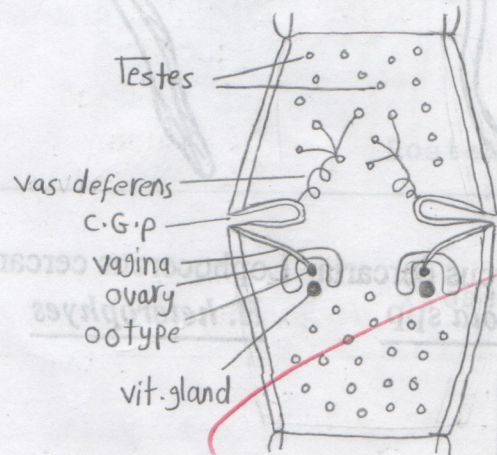 Testes
vas deferens
C.G.P
vagina
ovary
ootype
vit.gland